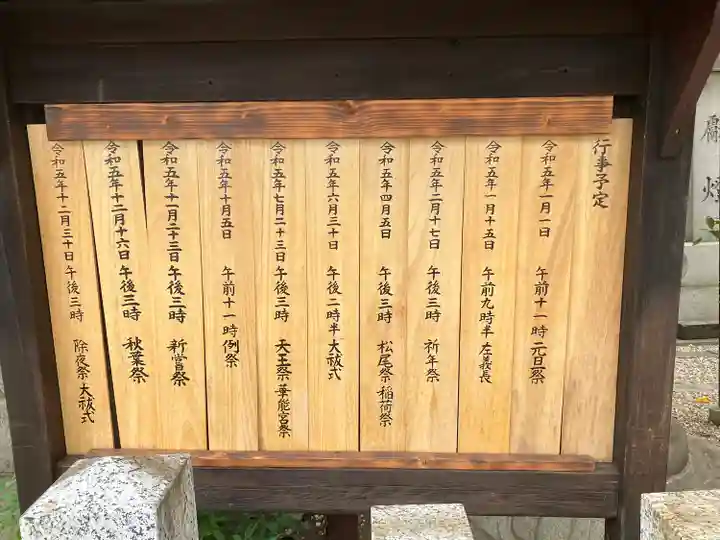 行事予定
令和五年一月一日 午前十一時 元旦祭
令和五年一月十五日 午前九時半 左義長
令和五年二月十七日 午後三時 祈年祭
令和五年四月五日 午後三時 松尾祭 稲荷祭
令和五年六月三十日 午後二時半 大祓式
令和五年七月二十三日 午後三時 天王祭 華能宮祭
令和五年十月五日 午前十一時 例祭
令和五年十一月二十三日 午後三時 新嘗祭
令和五年十二月十六日 午後三時 秋葉祭
令和五年十二月三十日 午後三時 除夜祭 大祓式
献燈